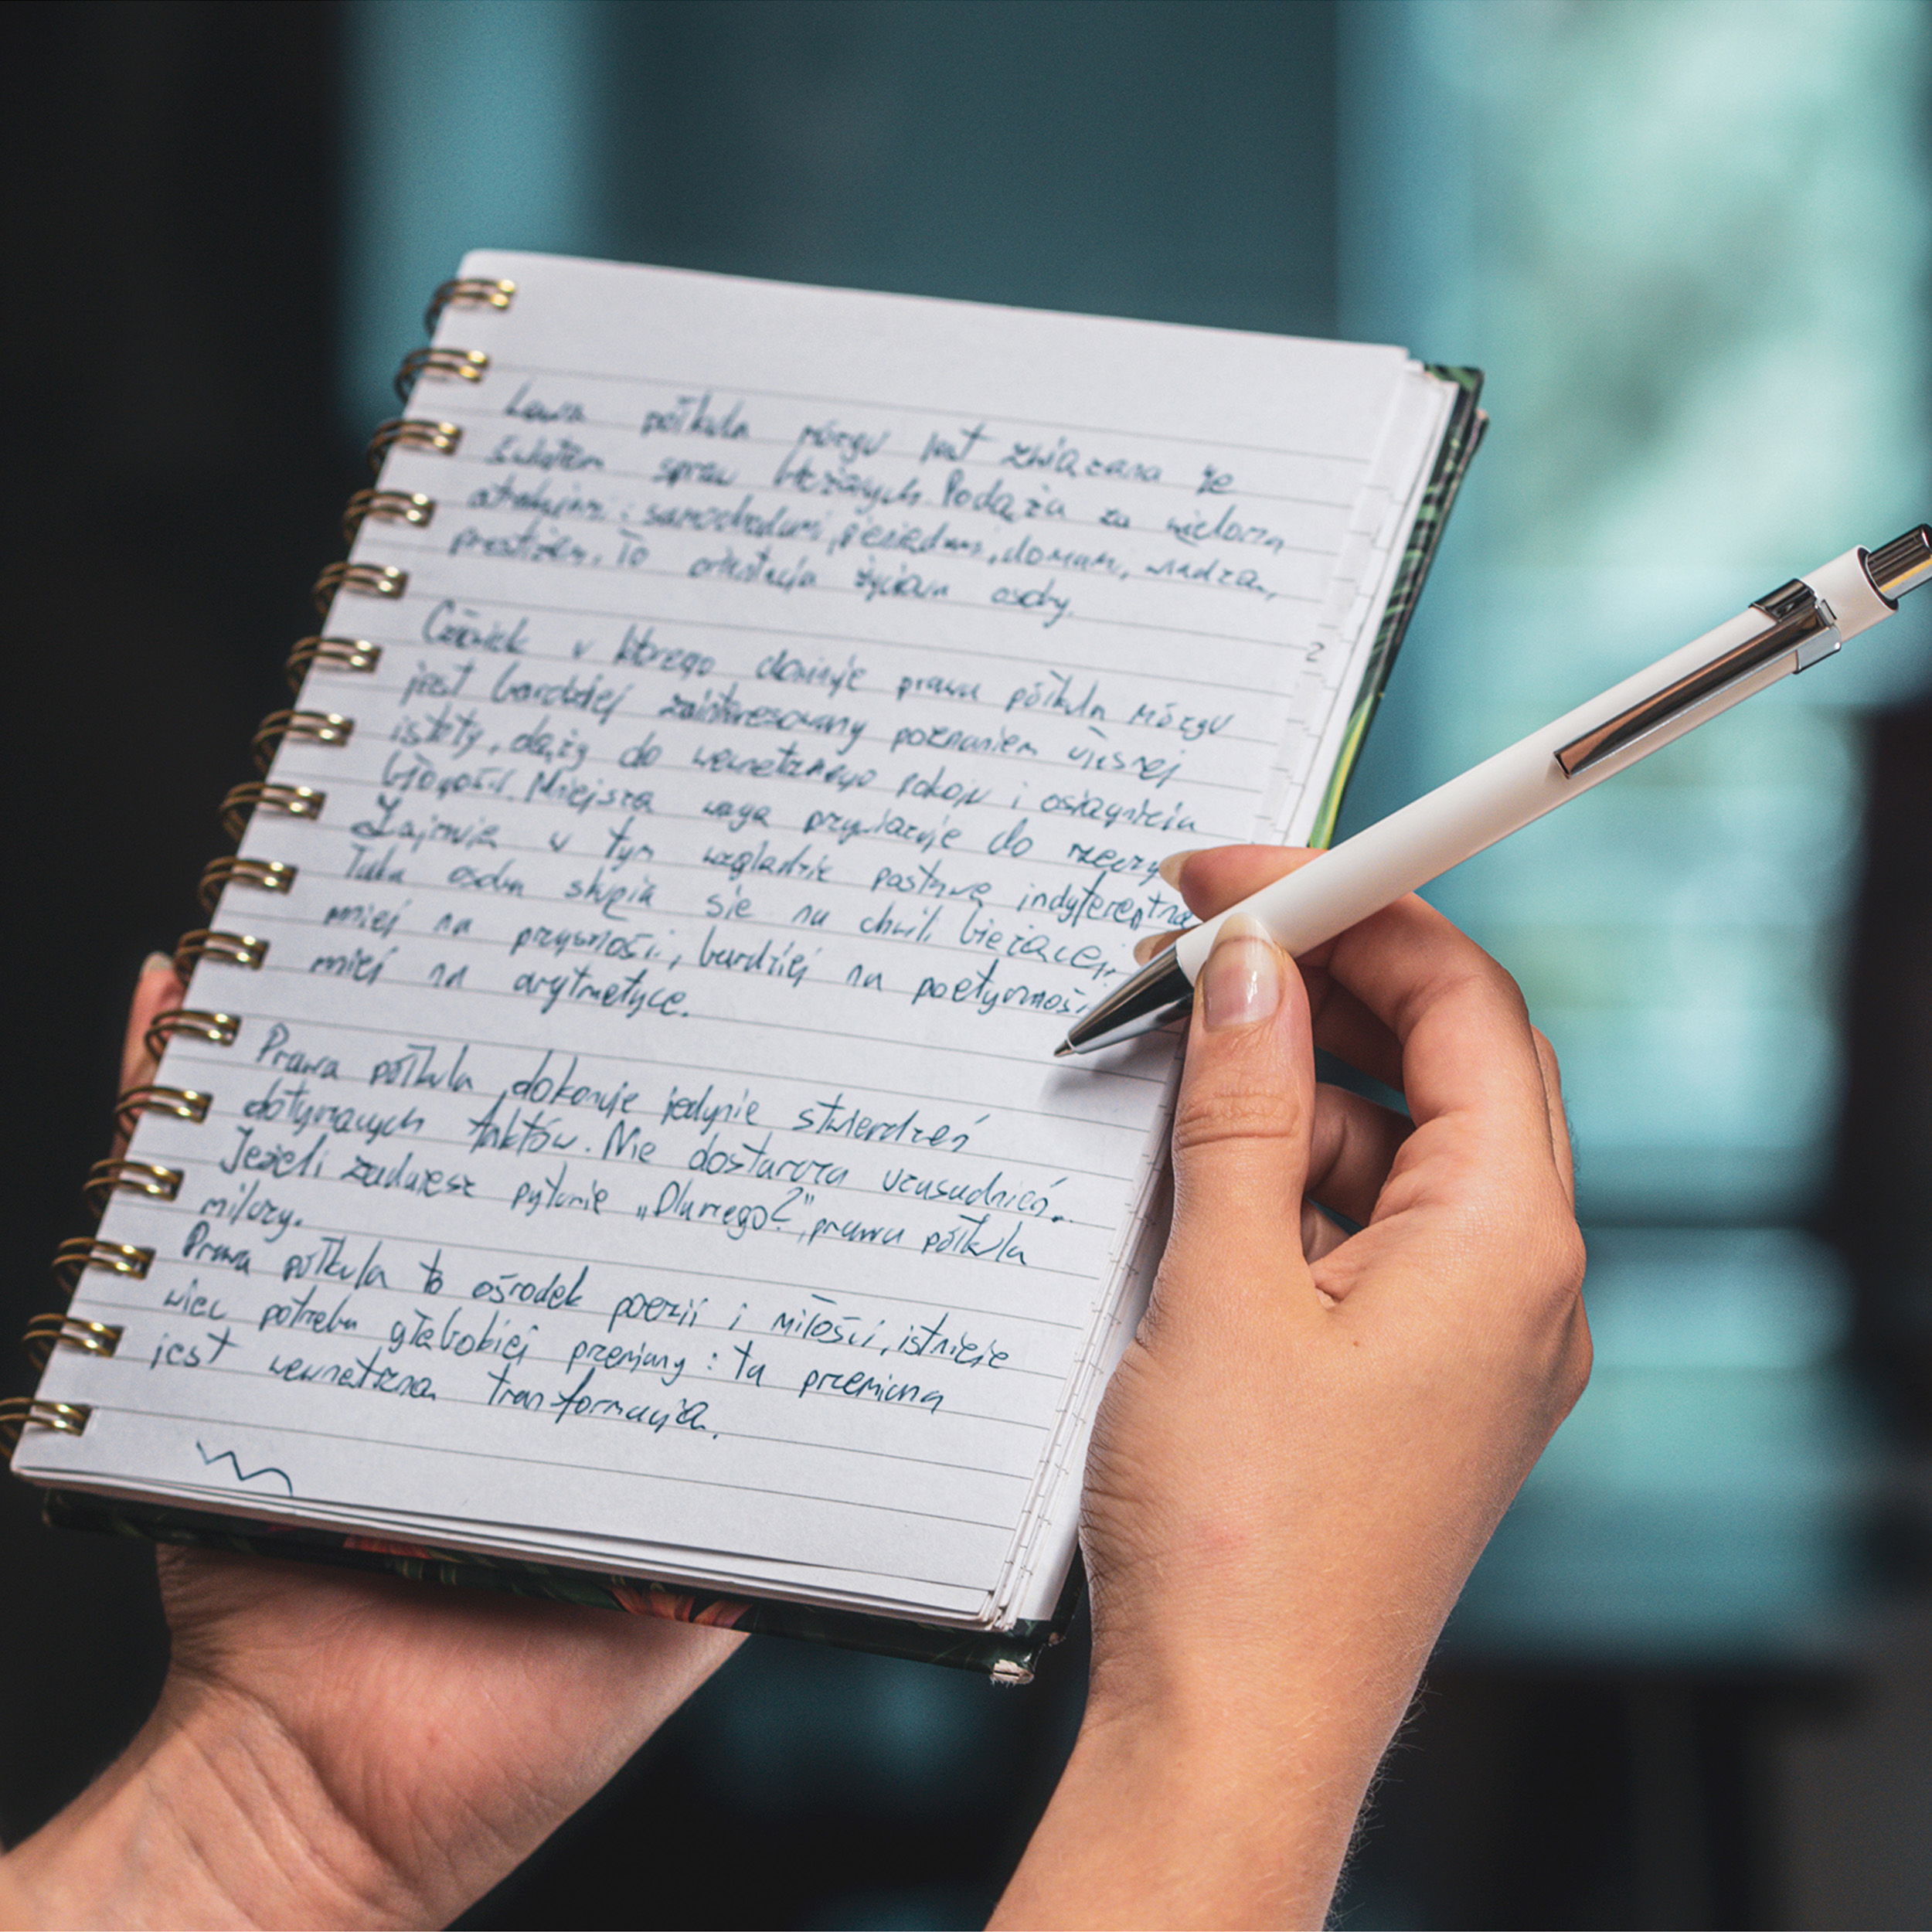 Lewa półkula mózgu jest związana ze
światem spraw bieżących. Podąża za wieloma
atrakcjami: samochodami, pieniędzmi, domami, władzą,
prestiżem. To orientacja życiowa osoby.
Człowiek w którego dominuje prawa półkula mózgu
jest bardziej zainteresowany poznaniem własnej
istoty, dąży do wewnętrznego pokoju i osiągnięcia
błogości. Miejsza waga przywiązuje do rzeczy
Zajmuje w tym względzie postawę indyferentną
Taka osoba skupia się na chwili bieżącej,
mniej na przyszłości, bardziej na poetyczności
mniej na arytmetyce.
Prawa półkula dokonuje jedynie stwierdzeń
dotyczących faktów. Nie dostarcza uzasadnień.
Jeżeli zadajesz pytanie „Dlaczego?", prawa półkula
milczy.
Prawa półkula to ośrodek poezji i miłości, istnieje
wiec potrzeba głębokiej przemiany: ta przemiana
jest wewnętrzna transformacja.
2